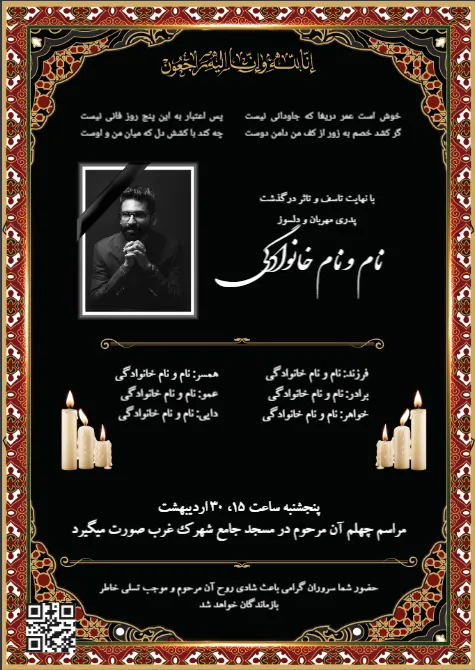 إنا لله وإنا إليه راجعون
خوش است عمر دریغا که جاودانی نیست پس اعتبار به این پنج روز فانی نیست
گر کشد خصم به زور از کف من دامن دوست چه کند با کشش دل که میان من و اوست
با نهایت تاسف و تاثر درگذشت
پدری مهربان و دلسوز
نام و نام خانوادگی
فرزند: نام و نام خانوادگی همسر: نام و نام خانوادگی
برادر: نام و نام خانوادگی عمو: نام و نام خانوادگی
خواهر: نام و نام خانوادگی دایی: نام و نام خانوادگی
پنجشنبه ساعت ۱۵، ۳۰ اردیبهشت
مراسم چهلم آن مرحوم در مسجد جامع شهرک غرب صورت میگیرد
حضور شما سروران گرامی باعث شادی روح آن مرحوم و موجب تسلی خاطر
بازماندگان خواهد شد